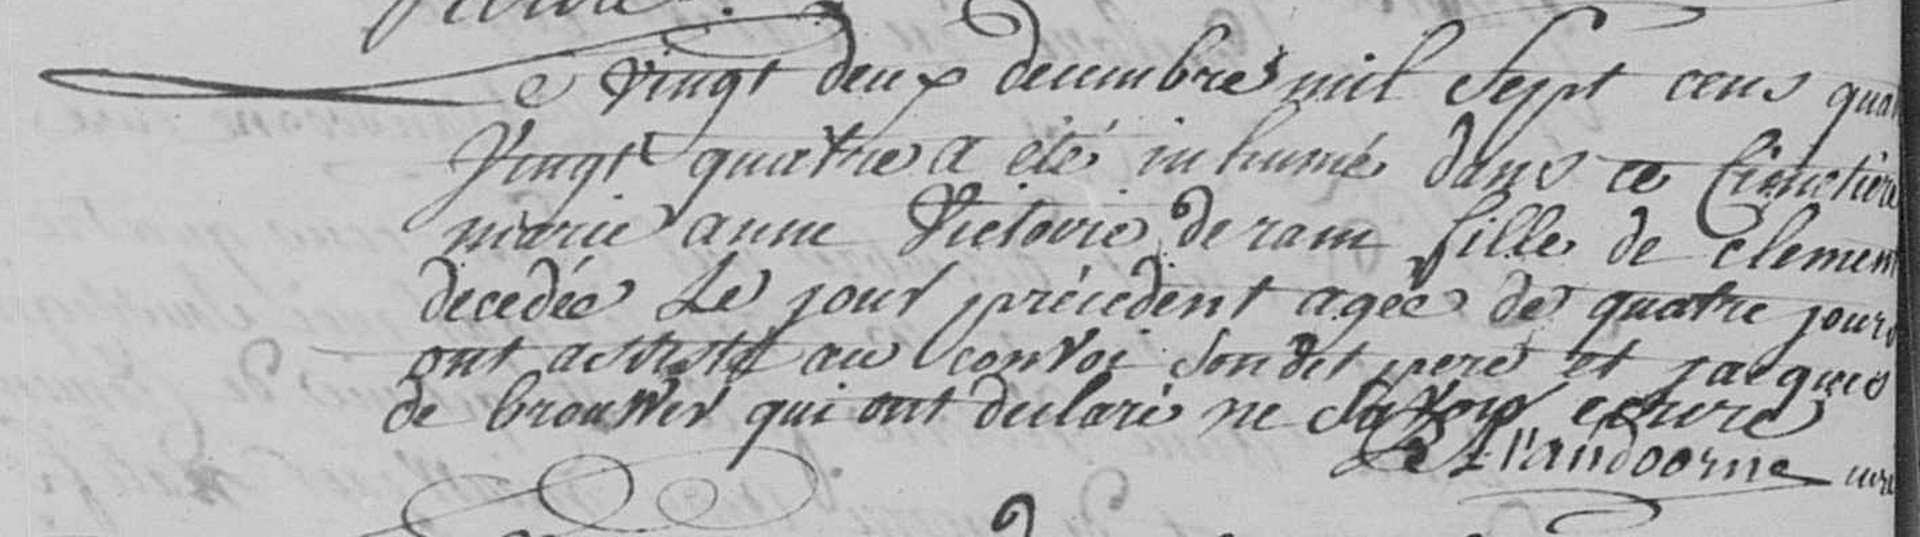 Le vingt deux decembre mil sept cens qua
vingt quatre a été inhumé dans ce Cimetiere
marie anne Victorie de ram fille de clement
decedée Le jour précedent agée de quatre jours
ont assisté au convoi son dit pere et jacques
de brouwer qui ont declaré ne savoir ecrire
vandoorne curé